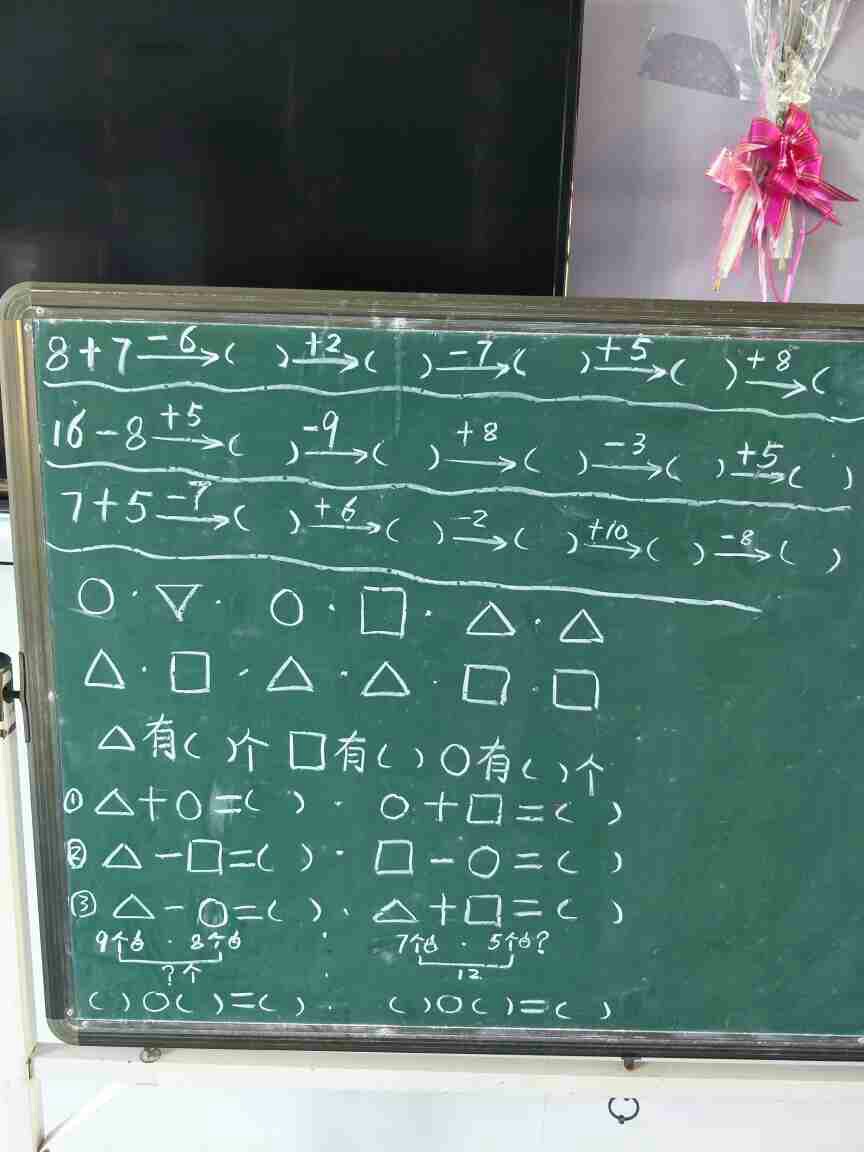 8+7 -6→( ) +2→( ) -7→( ) +5→( ) +8→(
16-8 +5→( ) -9→( ) +8→( ) -3→( ) +5→( )
7+5 -7→( ) +6→( ) -2→( ) +10→( ) -8→( )
○·▽·○·□·△·△
△·□·△·△·□·□
△有( )个 □有( ) ○有( )个
① △+○=( )· ○+□=( )
② △-□=( )· □-○=( )
③ △-○=( )· △+□=( )
9个 · 8个 7个 · 5个 ?
?个 12
( )○( )=( )· ( )○( )=( )